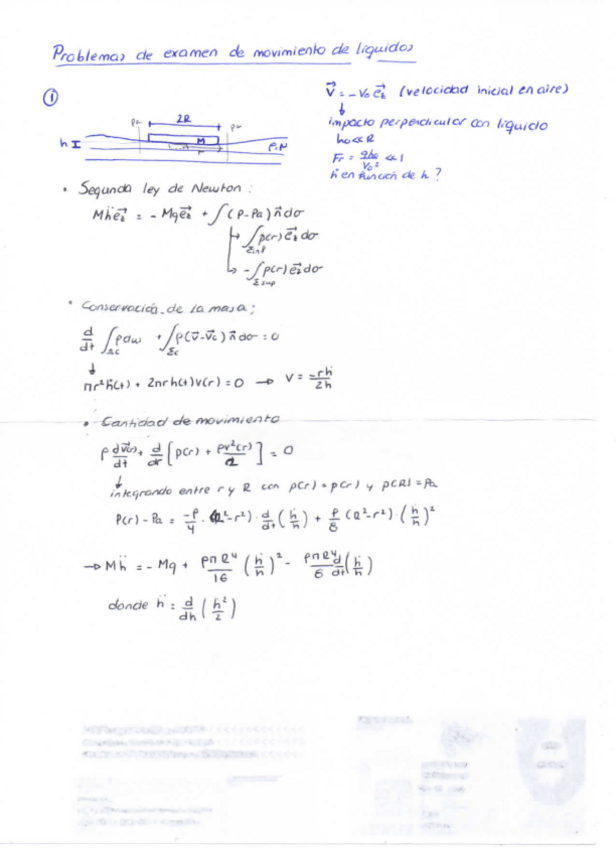 Problemas de examen de movimiento de líquidos
①
2R
Pa
Pa
h
M
r
ρ, μ
V⃗ = -V₀ e⃗z (velocidad inicial en aire)
↓
impacto perpendicular con líquido
h₀ << R
Fr = gh₀/V₀² << 1
ḣ en función de h?
• Segunda ley de Newton:
Mḧe⃗z = -Mge⃗z + ∫(P-Pa) n⃗ dσ
↳ ∫Σinf p(r) e⃗z dσ
↳ -∫Σsup p(r) e⃗z dσ
• Conservación de la masa:
d/dt ∫Ωc ρdω + ∫Σc ρ(v⃗-v⃗c) n⃗ dσ = 0
↓
πr²ḣ(t) + 2πrh(t)v(r) = 0 → V = -rḣ/2h
• Cantidad de movimiento
ρ dv⃗(r)/dt + d/dr [p(r) + ρv²(r)/2] = 0
↓
integrando entre r y R con p(r) = p(r) y p(R) = Pa
P(r) - Pa = -ρ/4 · (R²-r²) · d/dt (ḣ/h) + ρ/8 (R²-r²) · (ḣ/h)²
→ Mḧ = -Mg + ρπR⁴/16 (ḣ/h)² - ρπR⁴/8 d/dt (ḣ/h)
donde ḧ = d/dh (ḣ²/2)